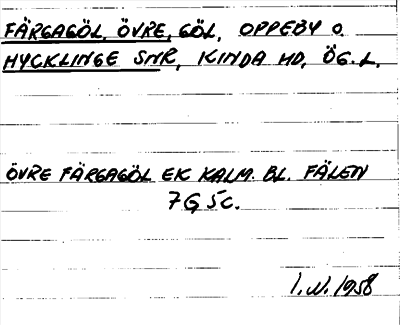 FÄRGAGÖL, ÖVRE, GÖL, OPPEBY O.
HYCKLINGE SNR, KINDA HD, ÖG. L.
ÖVRE FÄRGAGÖL EK KALM. BL. FÄLEN
7G 5c.
I.N. 1958